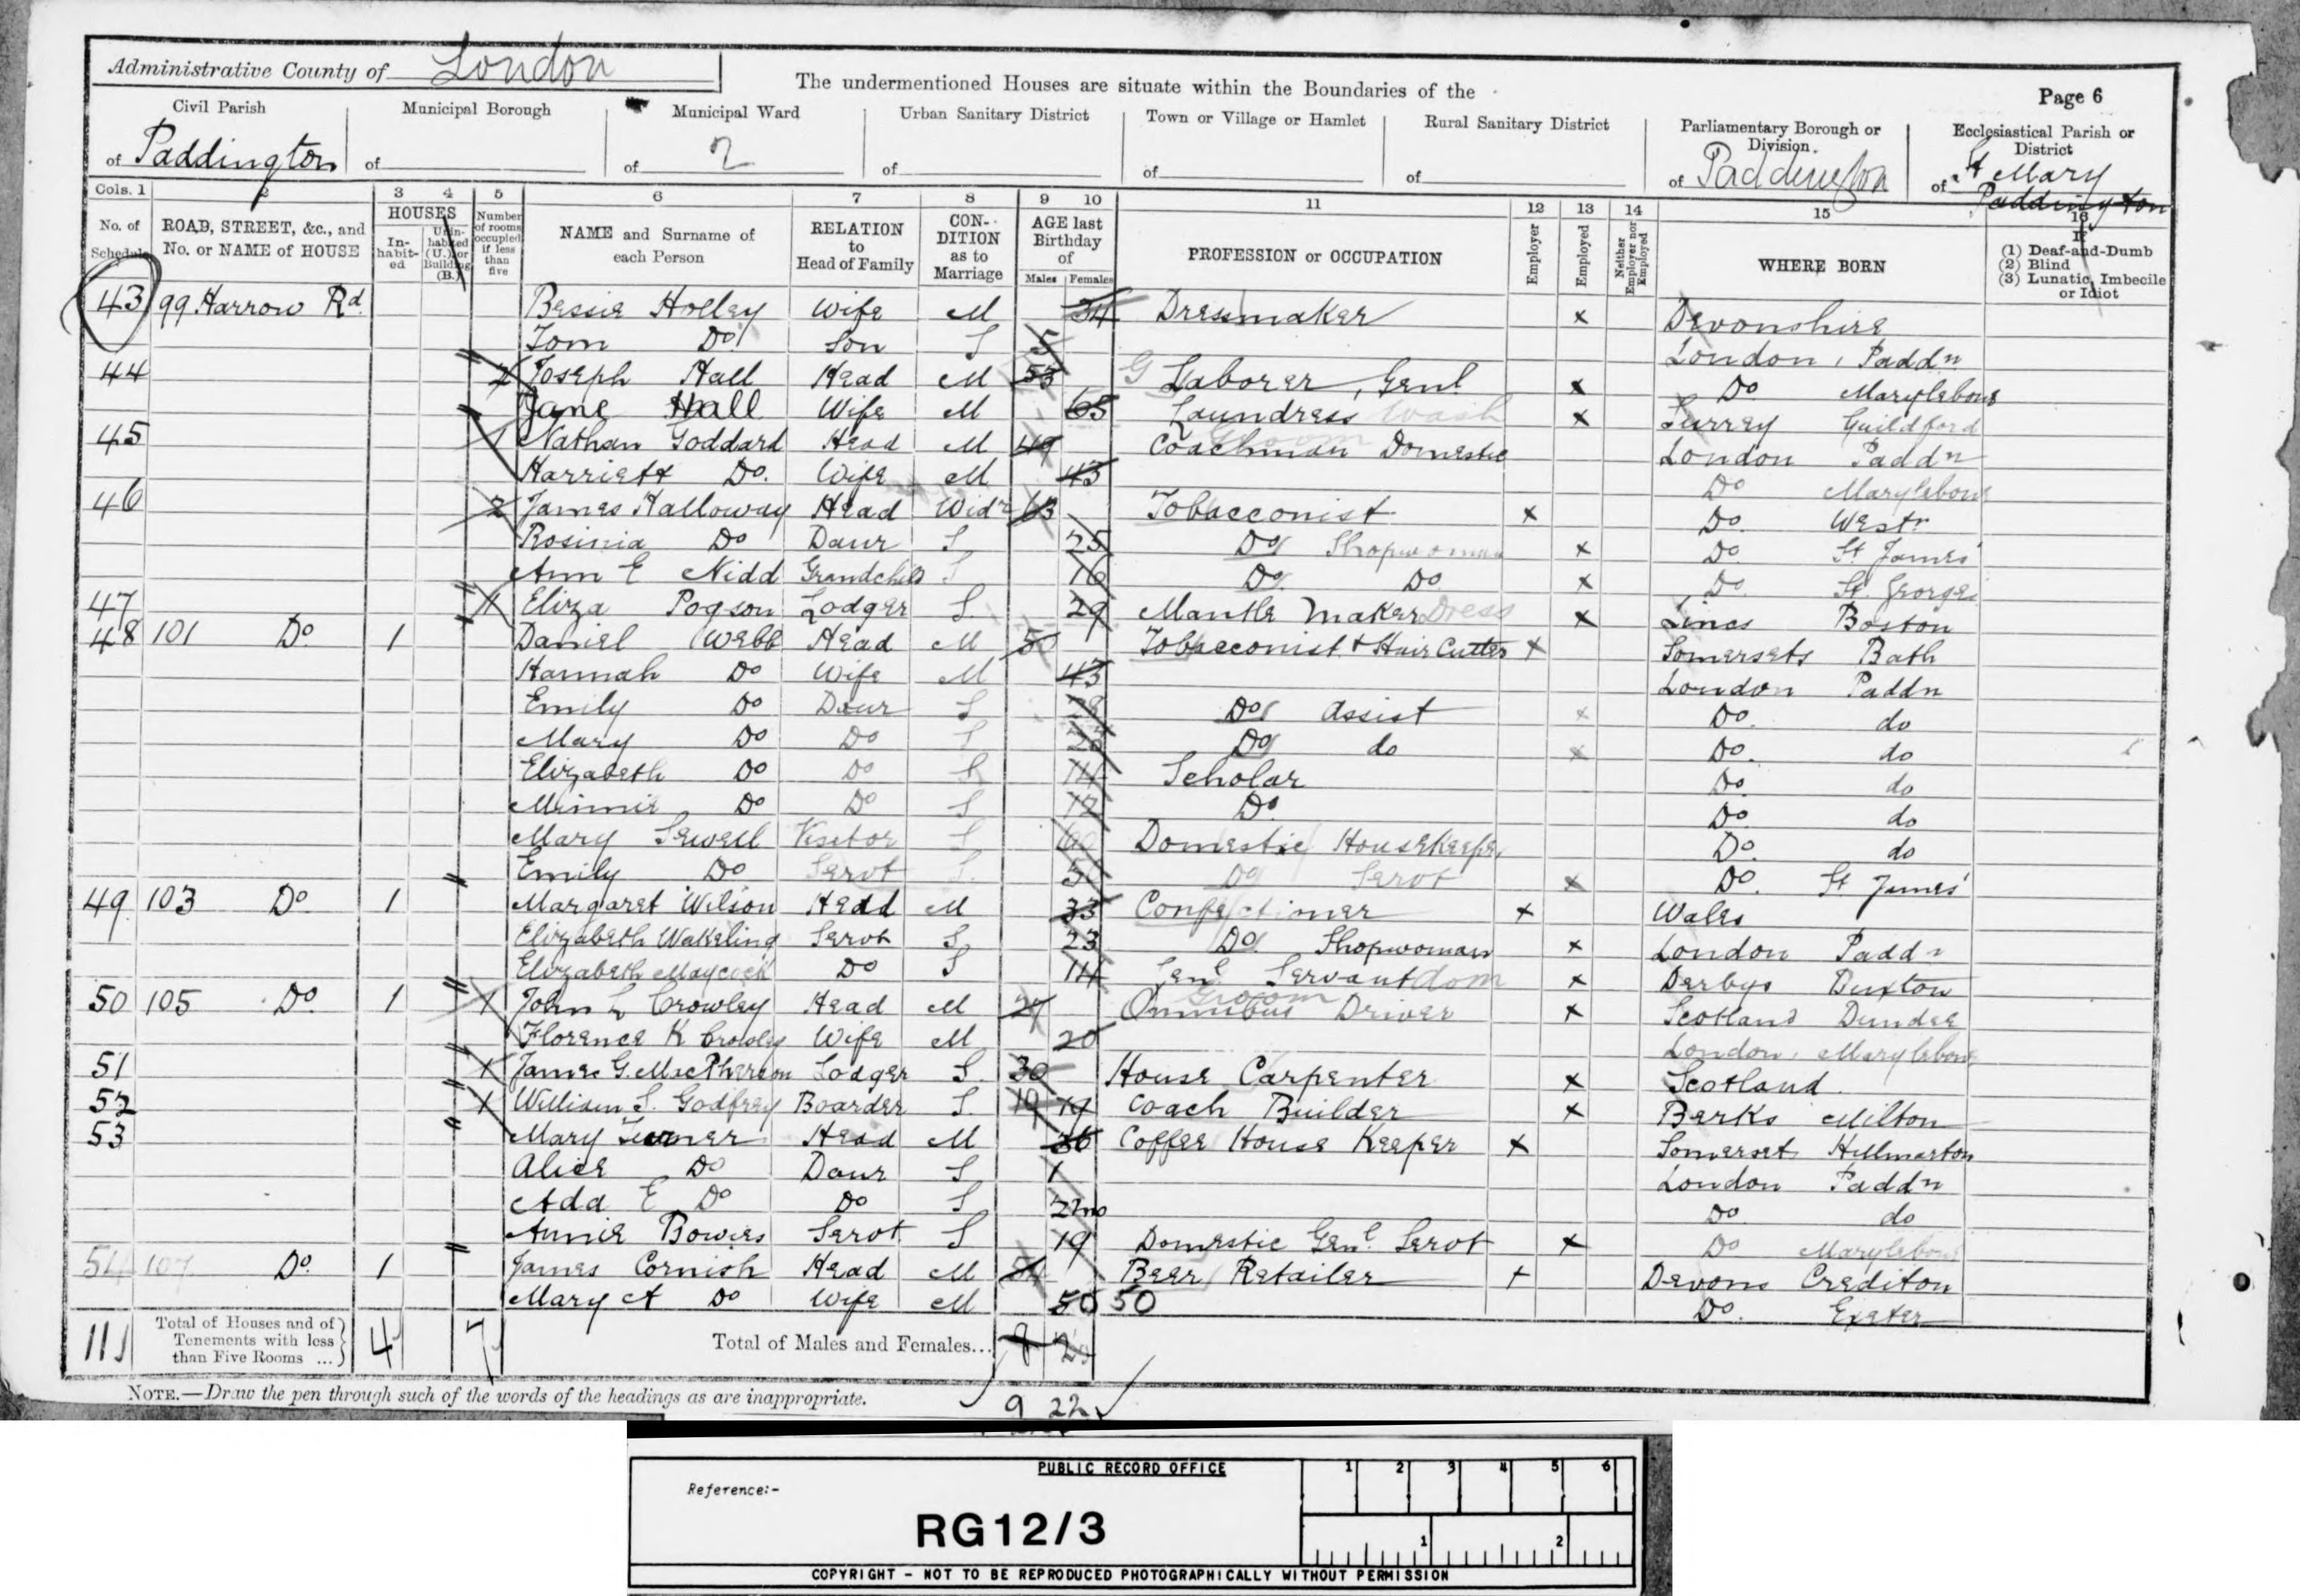 Administrative County of London
The undermentioned Houses are situate within the Boundaries of the
Page 6
Civil Parish of Paddington
Municipal Borough of
Municipal Ward of 2
Urban Sanitary District of
Town or Village or Hamlet of
Rural Sanitary District of
Parliamentary Borough or Division of Paddington
Ecclesiastical Parish or District of St Mary Paddington
Cols. 1 2 3 4 5 6 7 8 9 10 11 12 13 14 15 16
No. of Schedule
ROAD, STREET, &c., and No. or NAME of HOUSE
HOUSES
In-habit-ed
Unin-habited (U.) or Building (B.)
Number of rooms occupied if less than five
NAME and Surname of each Person
RELATION to Head of Family
CON-DITION as to Marriage
AGE last Birthday of
Males Females
PROFESSION or OCCUPATION
Employer
Employed
Neither Employer nor Employed
WHERE BORN
If
(1) Deaf-and-Dumb
(2) Blind
(3) Lunatic, Imbecile or Idiot
43 99 Harrow Rd. Bessie Holley Wife M 34 Dressmaker x Devonshire
Tom Do Son S 5 London, Paddn
44 2 Joseph Hall Head M 53 G Laborer, Genl x Do Marylebone
Jane Hall Wife M 65 Laundress Wash x Surrey Guildford
45 1 Nathan Goddard Head M 49 Groom Coachman Domestic London Paddn
Harriett Do. Wife M 43 Do Marylebone
46 2 James Halloway Head Widr 63 Tobacconist x Do. Westr
Rosinia Do Daur S 25 Do Shopwoman x Do. St James'
Ann E Nidd Grandchild S 16 Do. Do. x Do. St. Georges
47 1 Eliza Pogson Lodger S. 29 Mantle Maker Dress x Lincs Boston
48 101 Do. 1 Daniel Webb Head M 50 Tobacconist & Hair Cutter x Somersets Bath
Hannah Do Wife M 43 London Paddn
Emily Do Daur S Do Assist x Do. do
Mary Do Do S Do do x Do. do
Elizabeth Do Do S 14 Scholar Do. do
Minnie Do Do S 12 Do. Do. do
Mary Sewell Visitor S 60 Domestic Housekeeper Do. do
Emily Do Servt S. Do Servt x Do. St James'
49 103 Do. 1 Margaret Wilson Head M 33 Confectioner x Wales
Elizabeth Wakeling Servt S 23 Do. Shopwoman x London Paddn
Elizabeth Maycock Do S 14 Genl Servant dom x Derbys Buxton
50 105 Do. 1 1 John L Crowley Head M 27 Groom Omnibus Driver x Scotland Dundee
Florence K Crowley Wife M 20 London, Marylebone
51 1 James G. MacPherson Lodger S. 30 House Carpenter x Scotland
52 1 William S. Godfrey Boarder S. 19 19 Coach Builder x Berks Milton
53 Mary Turner Head M 36 Coffee House Keeper x Somerset Hillmarton
Alice Do Daur S 1 London Paddn
Ada E Do Do S 2mo Do do
Annie Bowers Servt S 19 Domestic Genl. Servt x Do Marylebone
54 107 Do. 1 James Cornish Head M 54 Beer Retailer + Devons Crediton
Mary A Do Wife M 50 50 Do. Exeter
11 Total of Houses and of Tenements with less than Five Rooms ... 4 7 Total of Males and Females...
9 22
NOTE.—Draw the pen through such of the words of the headings as are inappropriate.
PUBLIC RECORD OFFICE
1 2 3 4 5 6
Reference:-
RG12/3
1 2
COPYRIGHT - NOT TO BE REPRODUCED PHOTOGRAPHICALLY WITHOUT PERMISSION